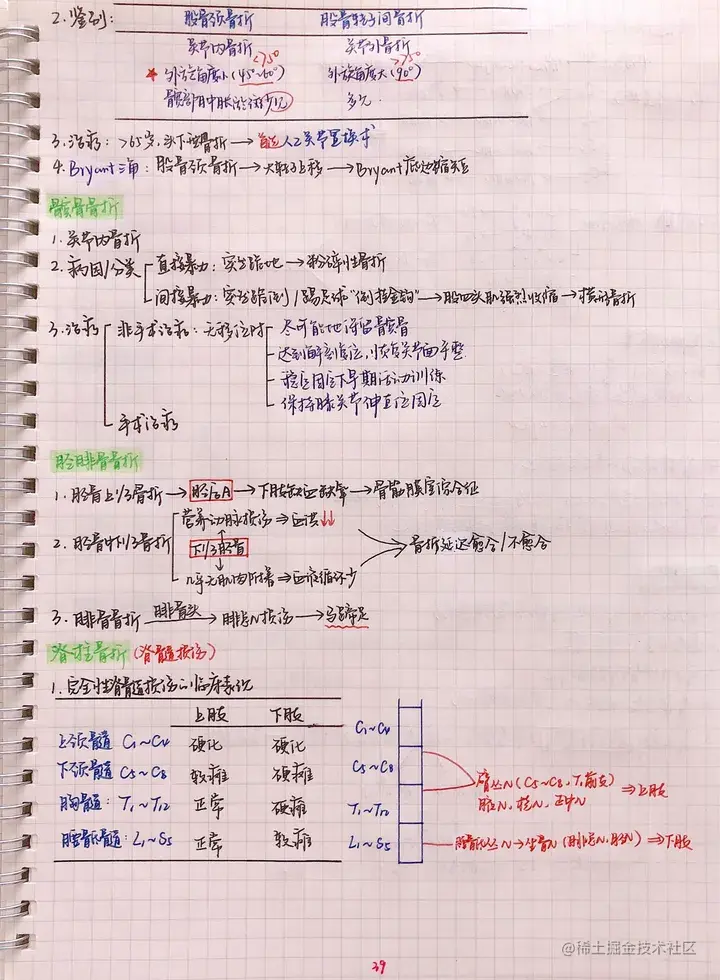 2.鉴别: 股骨颈骨折 股骨转子间骨折
关节内骨折 关节外骨折
<75° >75°
★ 外旋角度小(45°~60°) 外旋角度大(90°)
髋部肿胀淤斑少见 多见
3.治疗: >65岁,头下型骨折→首选人工关节置换术
4. Bryant三角: 股骨颈骨折→大转子上移→Bryant底边缩短
髌骨骨折
1.关节内骨折
2.病因/分类 直接暴力: 突然跪地→粉碎性骨折
间接暴力: 突然跪倒/踢足球"倒挂金钩"→股四头肌强烈收缩→横形骨折
3.治疗 非手术治疗: 无移位时 尽可能地保留髌骨
达到解剖复位,恢复关节面平整
稳定固定下早期活动训练
保持膝关节伸直位固定
手术治疗
胫腓骨骨折
1.胫骨上1/3骨折→胫后A→下肢缺血缺氧→骨筋膜室综合征
营养动脉损伤⇒血供↓↓
2.胫骨中下1/3骨折 下1/3胫骨 骨折延迟愈合/不愈合
几乎无肌肉附着⇒血液循环少
3.腓骨骨折 腓骨头→腓总N损伤→马蹄足
脊柱骨折(脊髓损伤)
1.完全性脊髓损伤的临床表现
上肢 下肢
上颈髓 C₁~C₄ 硬化 硬化
下颈髓 C₅~C₈ 软瘫 硬瘫
胸髓: T₁~T₁₂ 正常 硬瘫
腰骶髓: L₁~S₅ 正常 软瘫
C₁~C₄
C₅~C₈
T₁~T₁₂
L₁~S₅
臂丛N(C₅~C₈,T₁前支)⇒上肢
腋N,桡N,正中N
腰骶丛N→坐骨N(腓总N,胫N)⇒下肢
39
@稀土掘金技术社区